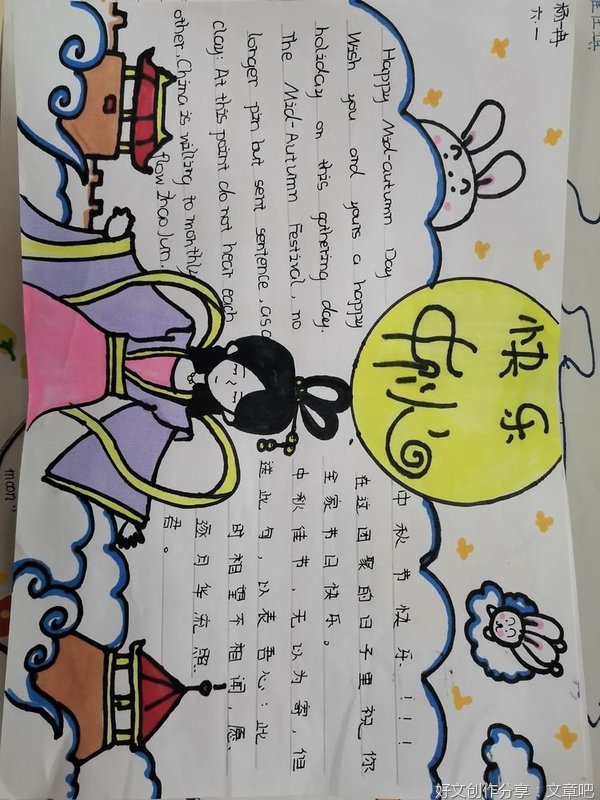 六.一
快乐
中秋
Happy Mid-autumn Day
Wish you and yours a happy
holiday on this gathering day.
The Mid-Autumn Festival, no
longer pin but sent sentence, as a
clay: At this point do not hear each
other, China is willing to monthly
flow zhao Jun.
中秋节快乐！！！
在这团聚的日子里祝你
全家节日快乐。
中秋佳节，无以为寄，但
送此句，以表吾心：此
时相望不相闻，愿
逐月华流照
君。
moon
好文创作分享：文章吧